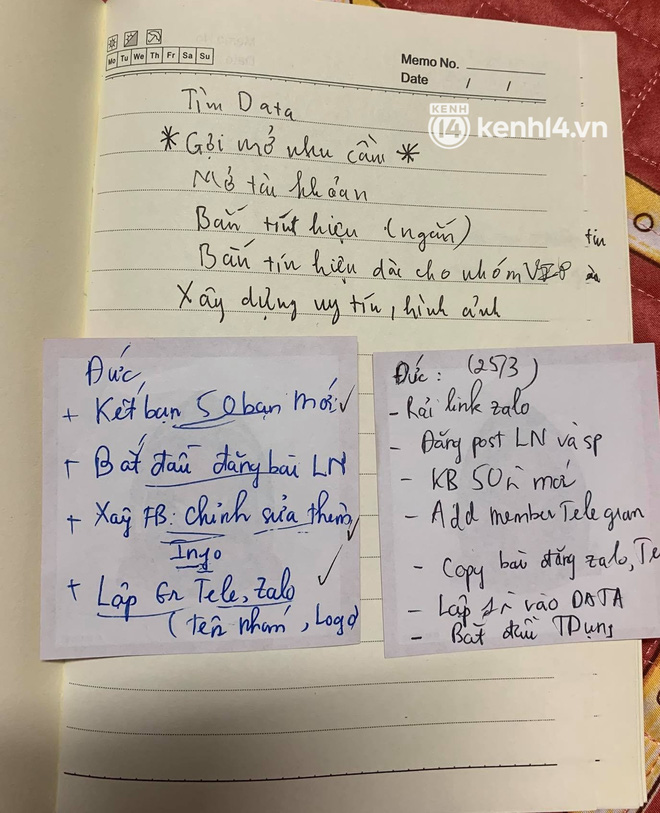 Mo Tu We Th Fr Sa Su
Memo No.
Date / /
KENH 14 kenh14.vn
Tìm Data
* Gợi mở nhu cầu *
Mở tài khoản
Bắn tín hiệu (ngắn)
Bắn tín hiệu dài cho nhóm VIP
tin
Xây dựng uy tín, hình ảnh
Đức
+ Kết bạn 50 bạn mới ✓
+ Bắt đầu đăng bài LN
+ Xây FB: chỉnh sửa thêm
Info
+ Lập Gr Tele, Zalo ✓
(tên nhóm, Logo
Đức: (25/3)
- Rải link zalo
- Đăng post LN và sp
- KB 50 n mới
- Add member Telegram
- Copy bài đăng zalo, Te
- Lập 1 n vào DATA
- Bắt đầu TDụng